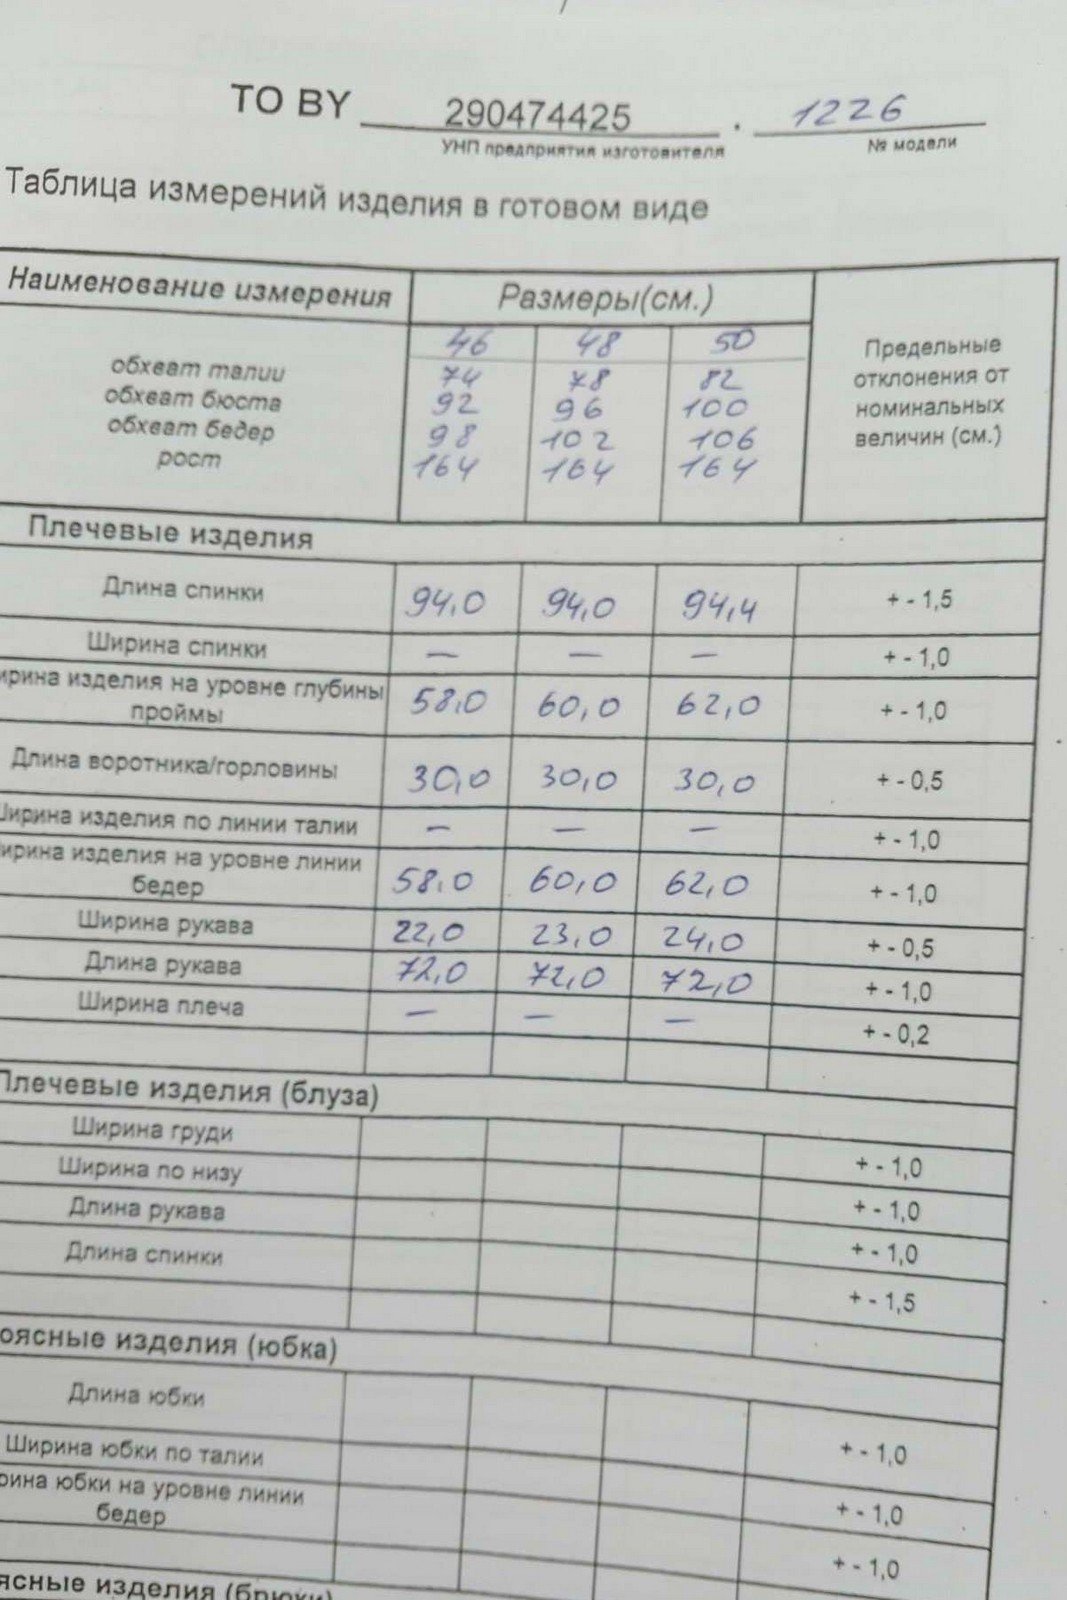 ТО BY 290474425 . 1226
УНП предприятия изготовителя № модели
Таблица измерений изделия в готовом виде
Наименование измерения Размеры(см.) Предельные отклонения от номинальных величин (см.)
46 48 50
обхват талии 74 78 82
обхват бюста 92 96 100
обхват бедер 98 102 106
рост 164 164 164
Плечевые изделия
Длина спинки 94,0 94,0 94,4 + - 1,5
Ширина спинки — — — + - 1,0
ирина изделия на уровне глубины проймы 58,0 60,0 62,0 + - 1,0
Длина воротника/горловины 30,0 30,0 30,0 + - 0,5
Ширина изделия по линии талии — — — + - 1,0
ирина изделия на уровне линии бедер 58,0 60,0 62,0 + - 1,0
Ширина рукава 22,0 23,0 24,0 + - 0,5
Длина рукава 72,0 72,0 72,0 + - 1,0
Ширина плеча — — — + - 0,2
Плечевые изделия (блуза)
Ширина груди + - 1,0
Ширина по низу + - 1,0
Длина рукава + - 1,0
Длина спинки + - 1,5
оясные изделия (юбка)
Длина юбки + - 1,0
Ширина юбки по талии + - 1,0
рина юбки на уровне линии бедер + - 1,0
ясные изделия (брюки)